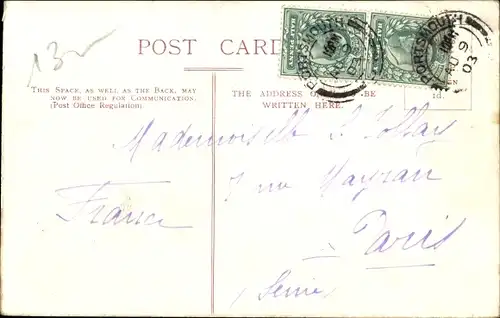 13
POST CARD
THIS SPACE, AS WELL AS THE BACK, MAY
NOW BE USED FOR COMMUNICATION.
(Post Office Regulation).
THE ADDRESS BE
WRITTEN HERE.
HALF PENNY
PORTSMOUTH
PORTSMOUTH
AU 9
03
Mademoiselle
7 rue Mayran
Paris
(Seine)
France